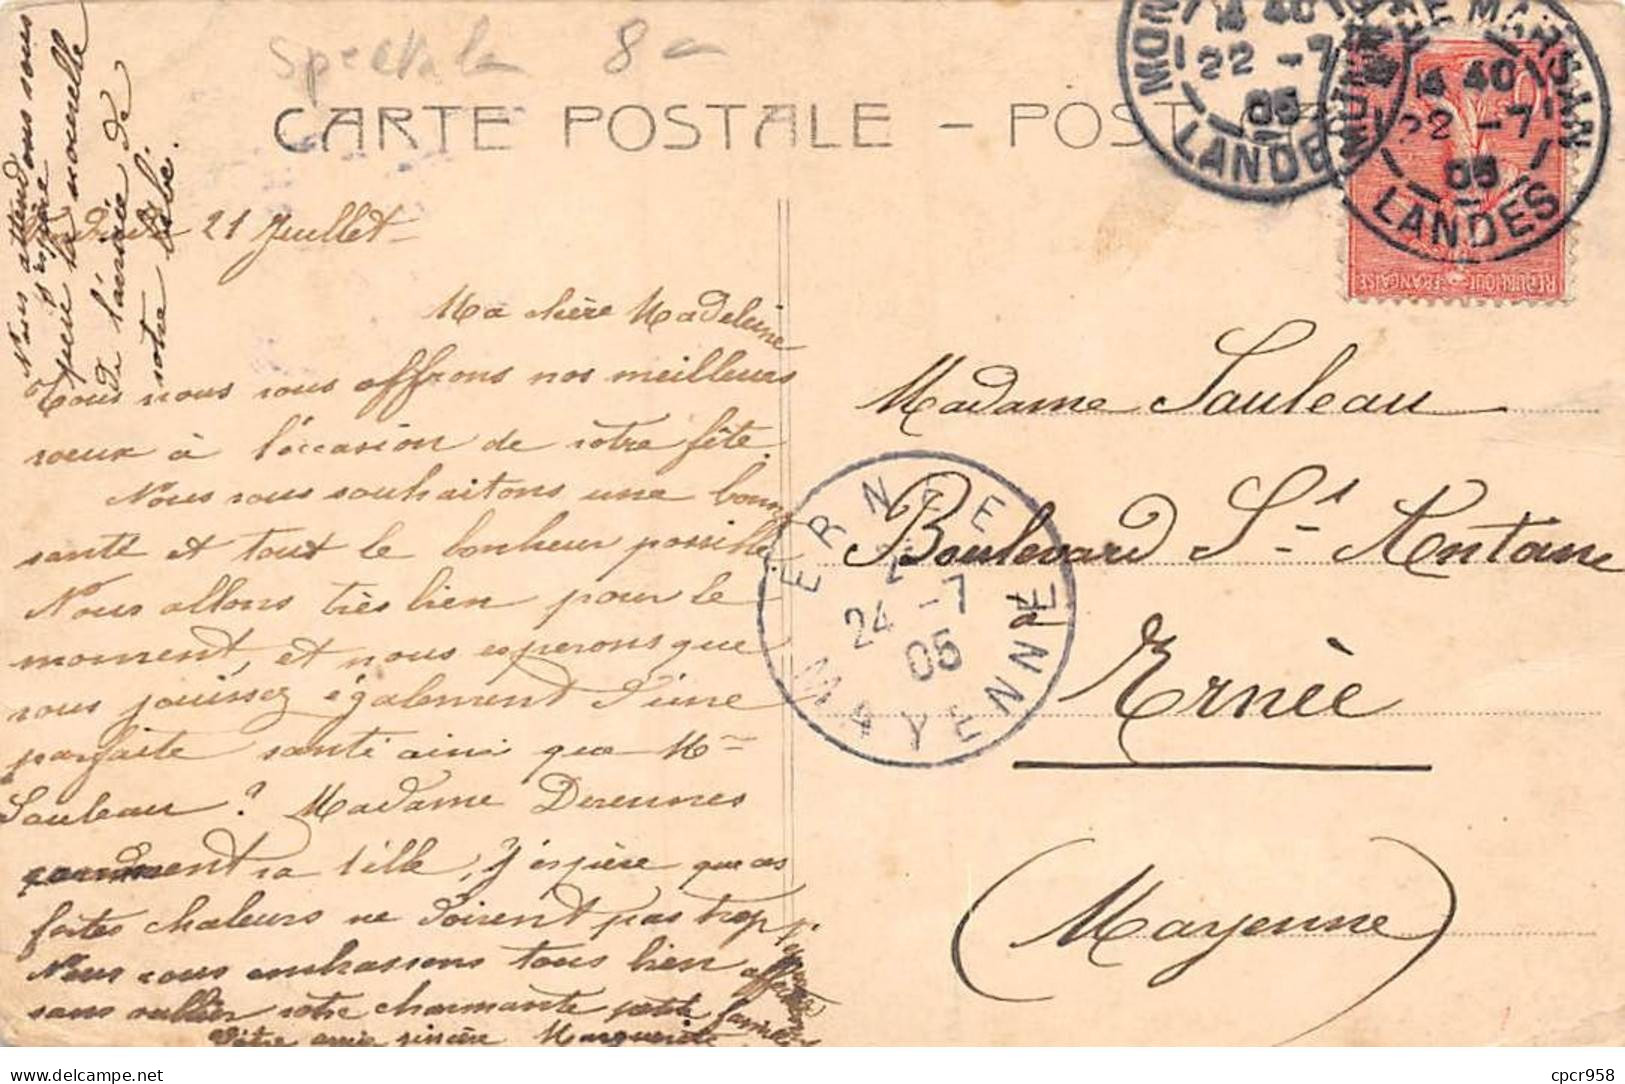 8
CARTE POSTALE - POST
14 40
22 - 7
05
LANDES
MARSAN
14 40
22 - 7
05
LANDES
REPUBLIQUE FRANÇAISE
Vendredi 21 Juillet
Ma chère Madeleine
Tous nous vous offrons nos meilleurs
voeux à l'occasion de votre fête.
Nous vous souhaitons une bonne
santé et tout le bonheur possible.
Nous allons très bien pour le
moment, et nous esperons que
vous jouissez également d'une
parfaite santé ainsi que Mr
Sauleau ? Madame
sa fille, J'espère que ces
fortes chaleurs ne doivent pas trop
Nous vous embrassons tous bien
sans oublier votre charmante petite famille
Votre amie sincère Marguerite
Nous attendons sous
peu la nouvelle
j'espère
de l'arrivée de
votre bébé.
Madame Sauleau
Boulevard St Antoine
à
Ernée
(Mayenne)
ERNÉE
24 - 7
05
MAYENNE
cpcr958